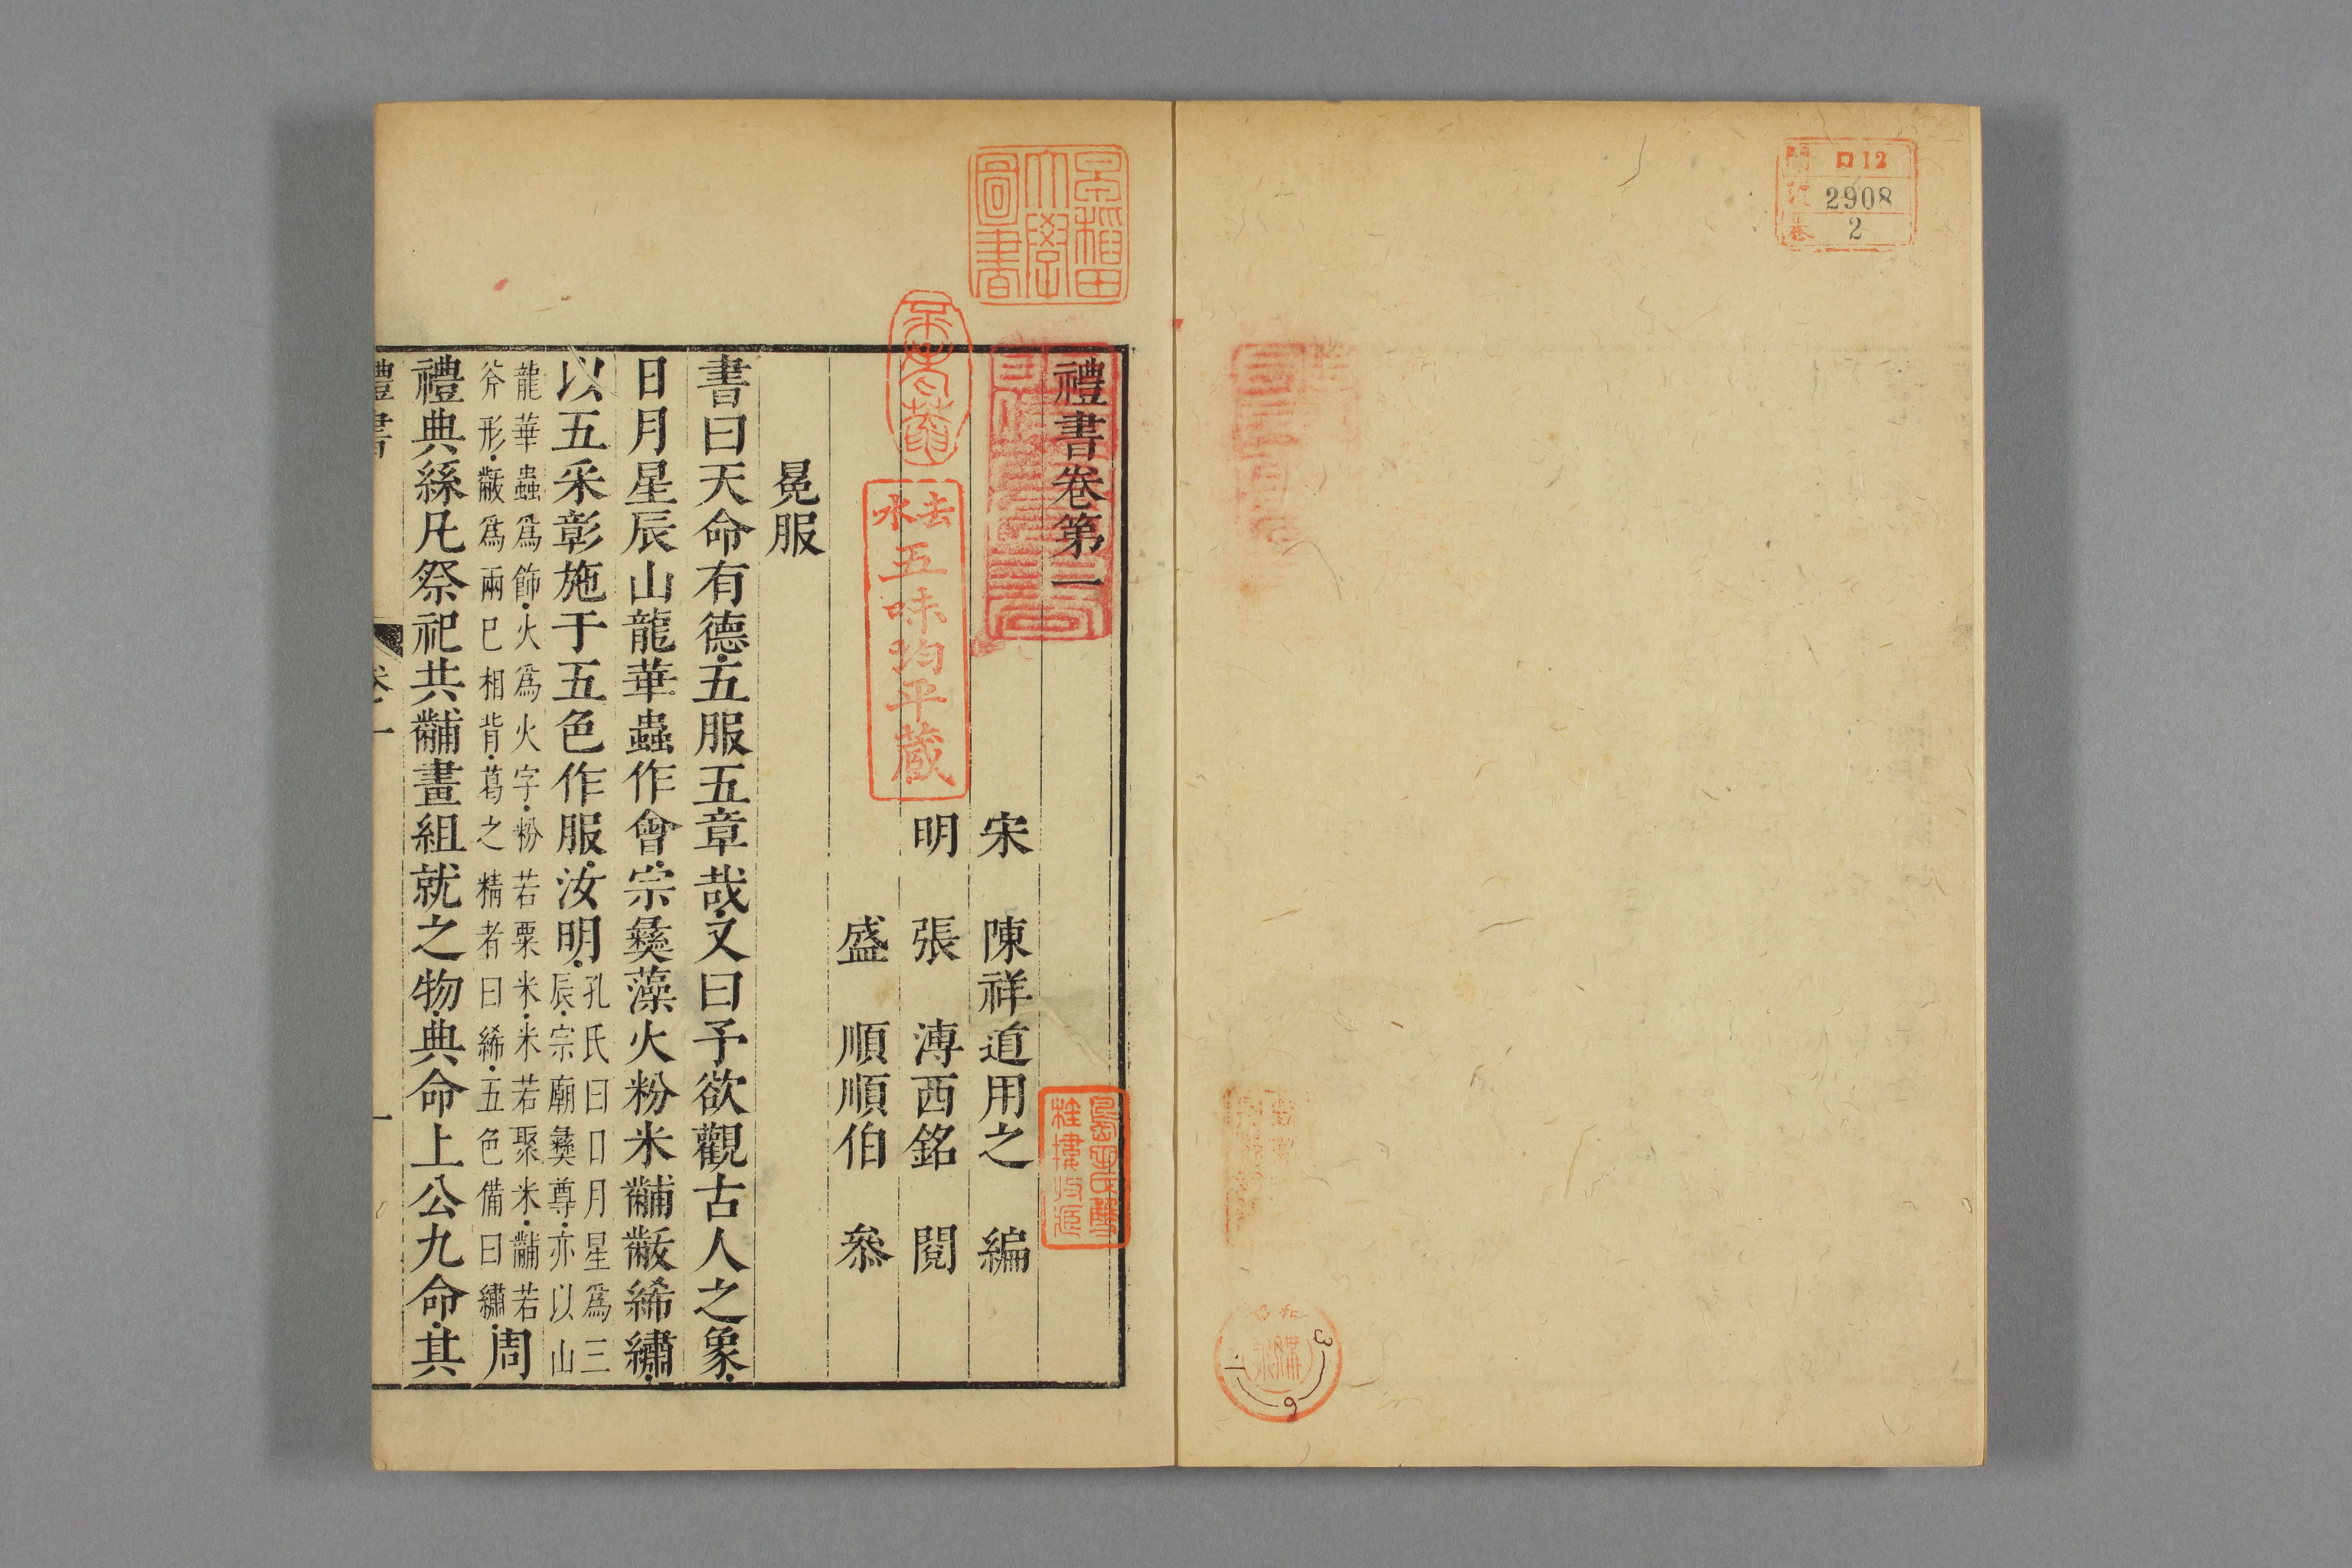 門 ロ12
號 2908
卷 2
昭和
購求
3 6 1
早稲田
大學
圖書
去水
五味均平蔵
禮書卷第一
宋 陳祥道用之 編
明 張 溥西銘 閱
盛 順順伯 叅
冕服
書曰天命有德五服五章哉又曰予欲觀古人之象
日月星辰山龍華蟲作會宗彝藻火粉米黼黻絺繡
以五采彰施于五色作服汝明孔氏曰日月星爲三
辰宗廟彝尊亦以山
龍華蟲爲飾火爲火字粉若粟米米若聚米黼若
斧形黻爲兩巳相背葛之精者曰絺五色備曰繡周
禮典絲凡祭祀共黼畫組就之物典命上公九命其
禮書 卷一 一